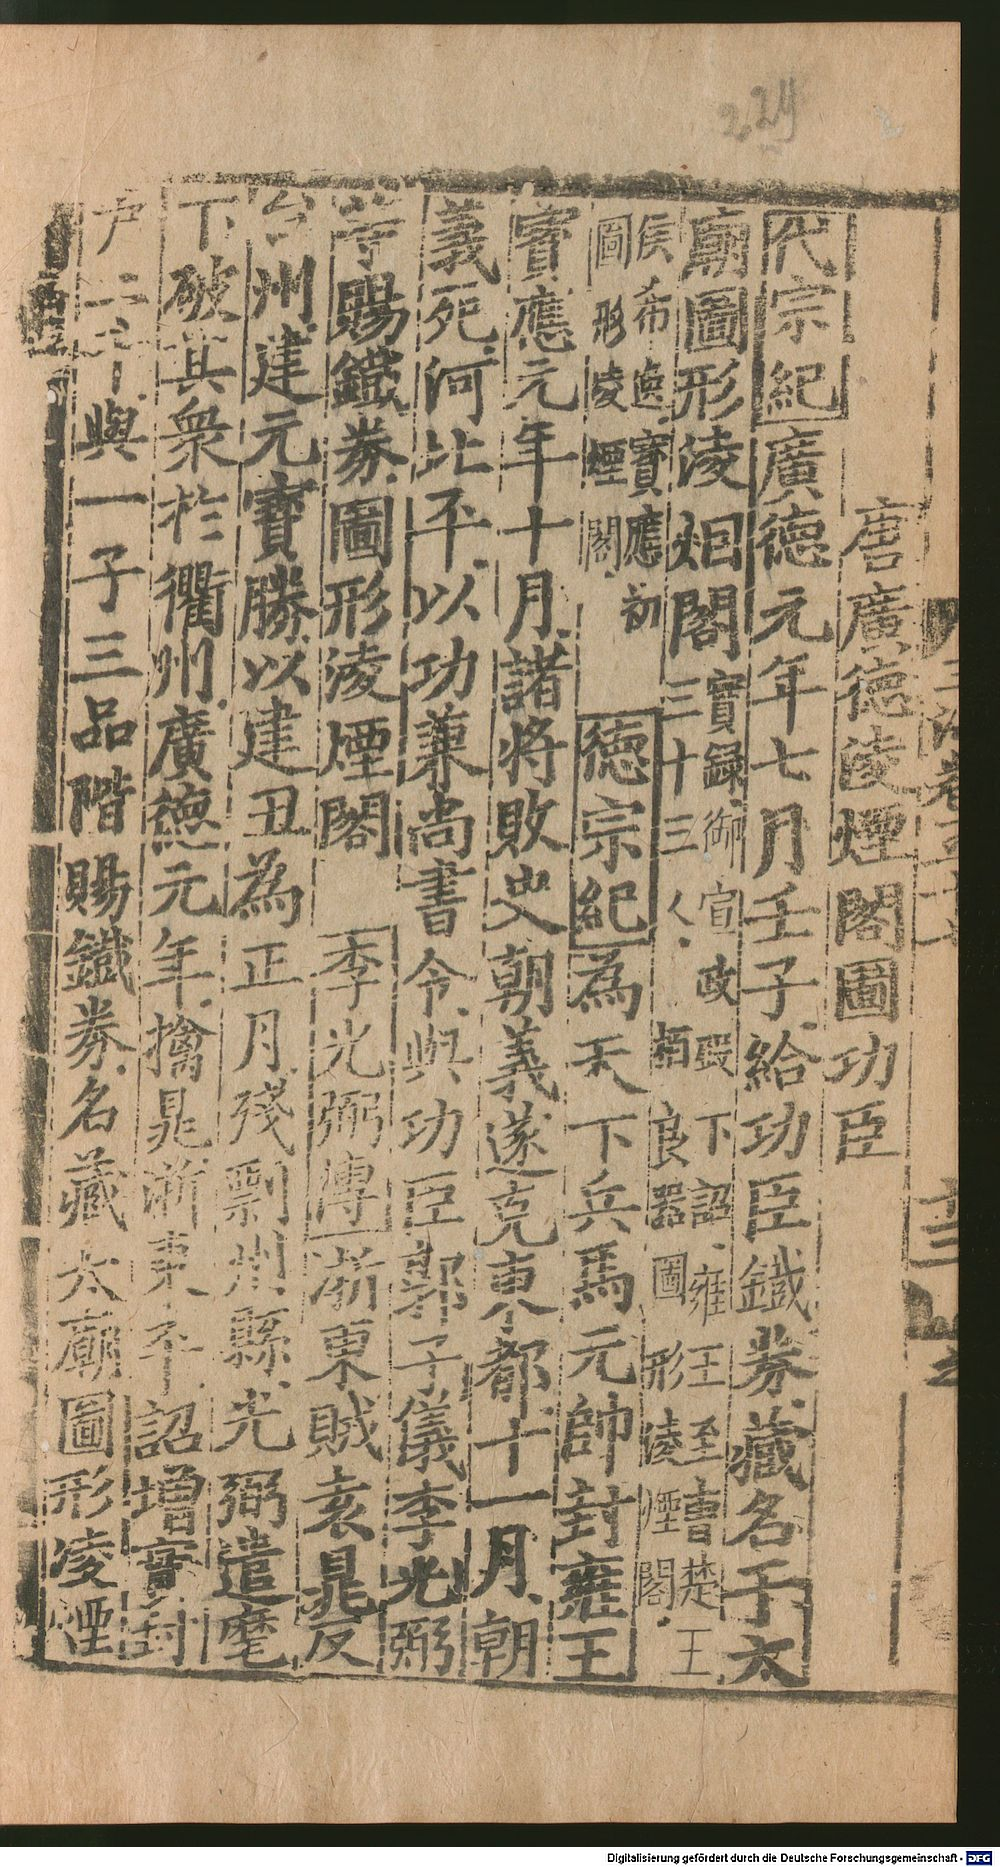 224
唐廣德淩煙閣圖功臣
代宗紀廣德元年七月壬子給功臣鐵券藏名于太
廟圖形淩烟閣實錄御宣政殿下詔雍王至曹楚王
三十三人栢良器圖形淩煙閣
侯希逸寶應初
圖形淩煙閣
德宗紀為天下兵馬元帥封雍王
寶應元年十月諸將敗史朝義遂克東都十一月朝
義死河北平以功兼尚書令與功臣郭子儀李光弼
等賜鐵券圖形淩煙閣李光弼傳浙東賊袁晁反
台州建元寶勝以建丑為正月殘剽州縣光弼遣麾
下破其衆於衢州廣德元年擒晁浙東平詔增實封
戶二千與一子三品階賜鐵券名藏太廟圖形淩煙
Digitalisierung gefördert durch die Deutsche Forschungsgemeinschaft - DFG